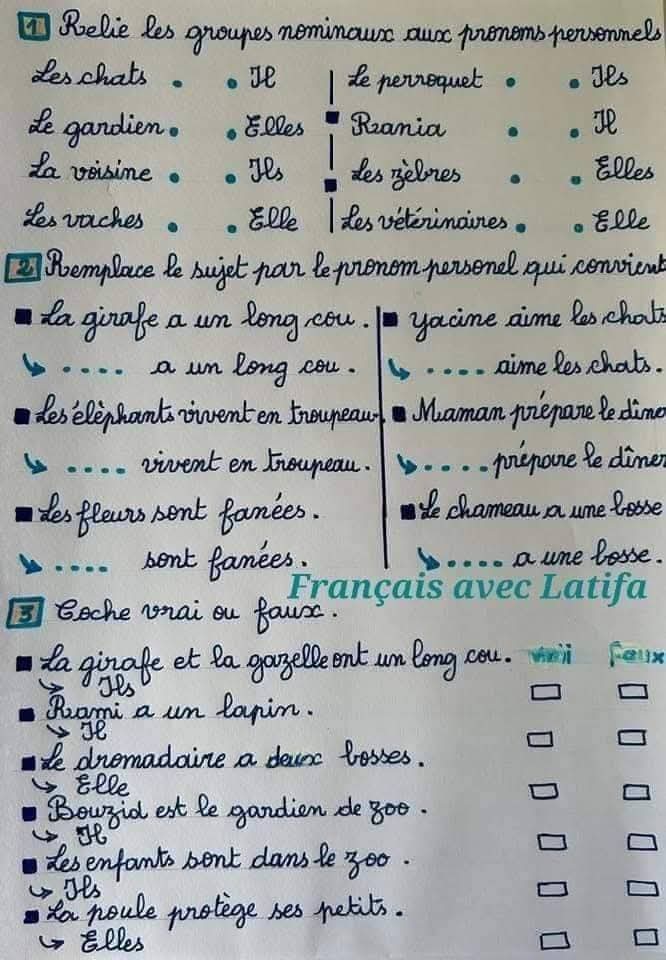 1 Relie les groupes nominaux aux pronoms personnels
Les chats . . Il | Le perroquet . . Ils
Le gardien. . Elles | Rania . . Il
La voisine . . Ils | Les zèbres . . Elles
Les vaches . . Elle | Les vétérinaires . . Elle
2 Remplace le sujet par le pronom personel qui convient
La girafe a un long cou. | Yacine aime les chats
.... a un long cou. | .... aime les chats.
Les élèphants vivent en troupeau. | Maman prépare le dîner
.... vivent en troupeau. | .... prépare le dîner
Les fleurs sont fanées. | Le chameau a une bosse
.... sont fanées. | .... a une bosse.
Français avec Latifa
3 Coche vrai ou faux.
La girafe et la gazelle ont un long cou. vrai faux
Ils
Rami a un lapin.
Il
Le dromadaire a deux bosses.
Elle
Bouzid est le gardien de zoo.
Il
Les enfants sont dans le zoo.
Ils
La poule protège ses petits.
Elles